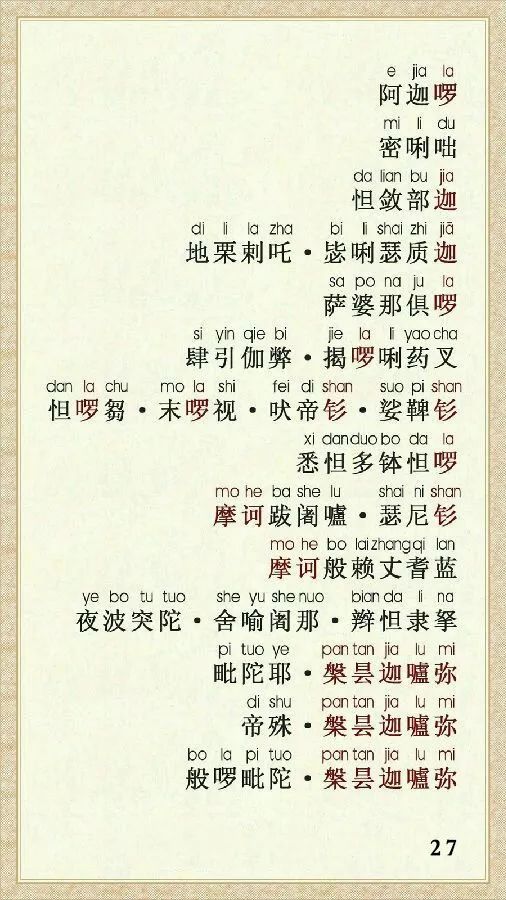 e jia la
阿迦啰
mi li du
密唎咄
da lian bu jia
怛敛部迦
di li la zha bi li shai zhi jiā
地栗剌吒·毖唎瑟质迦
sa po na ju la
萨婆那俱啰
si yin qie bi jie la li yao cha
肆引伽弊·揭啰唎药叉
dan la chu mo la shi fei di shan suo pi shan
怛啰刍·末啰视·吠帝钐·娑鞞钐
xi dan duo bo da la
悉怛多钵怛啰
mo he ba she lu shai ni shan
摩诃跋阇嚧·瑟尼钐
mo he bo lai zhang qi lan
摩诃般赖丈耆蓝
ye bo tu tuo she yu she nuo bian da li na
夜波突陀·舍喻阇那·辫怛隶拏
pi tuo ye pan tan jia lu mi
毗陀耶·槃昙迦嚧弥
di shu pan tan jia lu mi
帝殊·槃昙迦嚧弥
bo la pi tuo pan tan jia lu mi
般啰毗陀·槃昙迦嚧弥
27